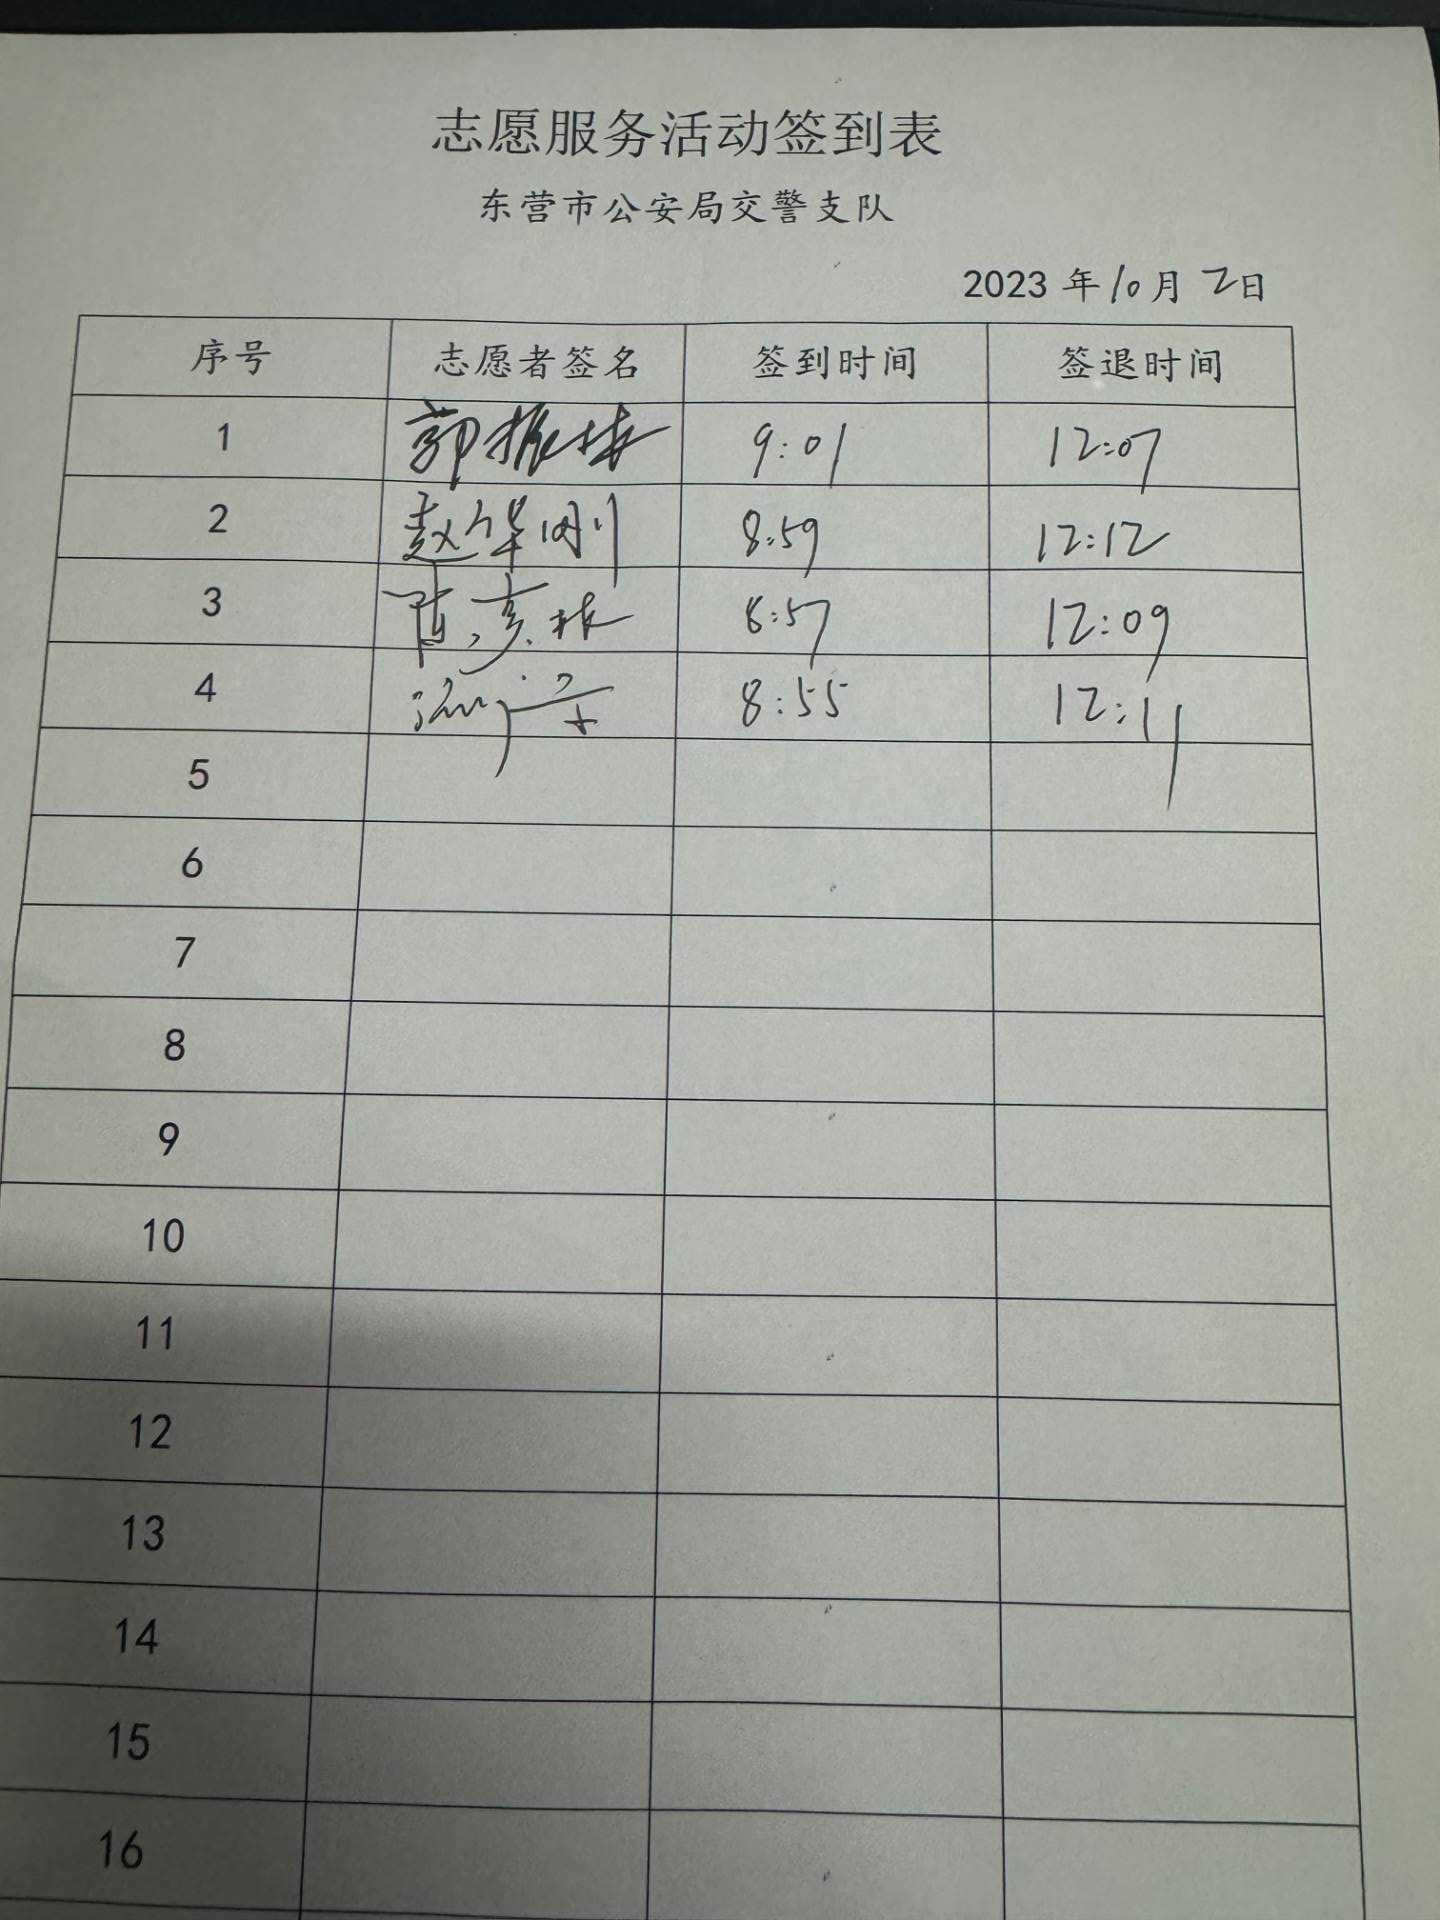 志愿服务活动签到表
东营市公安局交警支队
2023 年 10 月 2 日
序号 志愿者签名 签到时间 签退时间
1 郭振林 9:01 12:07
2 赵华刚 8:59 12:12
3 陈彦林 8:57 12:09
4 8:55 12:11
5
6
7
8
9
10
11
12
13
14
15
16